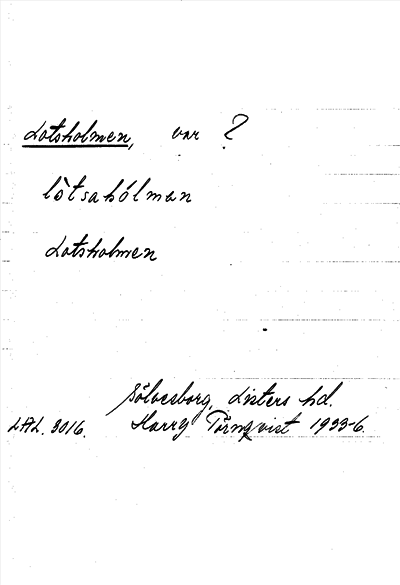 Lotsholmen, var ?
lòtsahólmen
Lotsholmen
Sölvesborg, Listers hd.
LAL. 3016. Harry Törnqvist 1933-6.